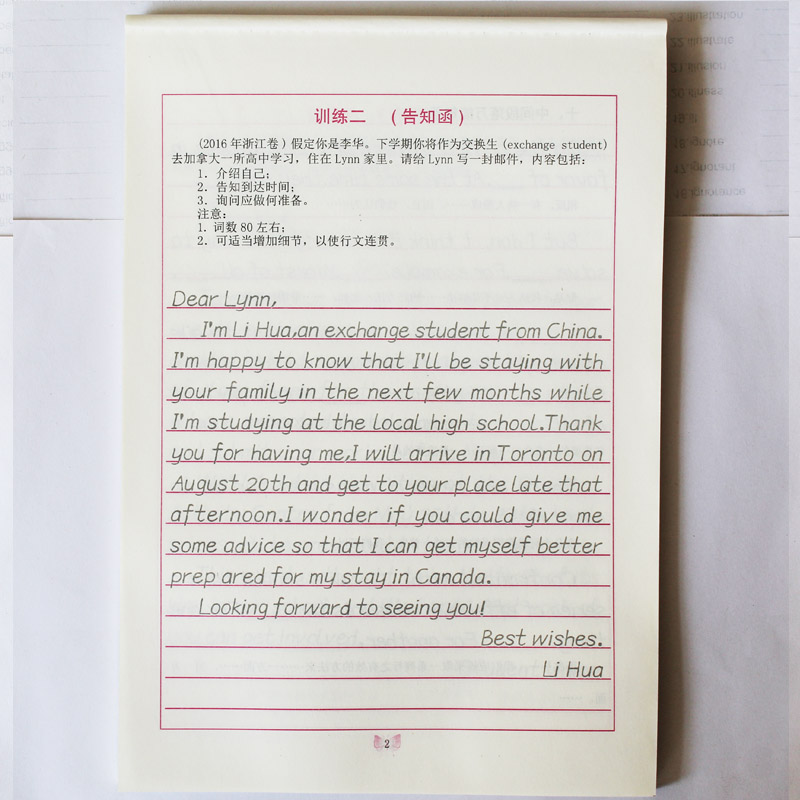 训练二 （告知函）
(2016年浙江卷）假定你是李华。下学期你将作为交换生(exchange student)
去加拿大一所高中学习，住在Lynn家里。请给Lynn写一封邮件，内容包括：
1. 介绍自己；
2. 告知到达时间；
3. 询问应做何准备。
注意：
1. 词数80左右；
2. 可适当增加细节，以使行文连贯。
Dear Lynn,
I'm Li Hua,an exchange student from China.
I'm happy to know that I'll be staying with
your family in the next few months while
I'm studying at the local high school.Thank
you for having me,I will arrive in Toronto on
August 20th and get to your place late that
afternoon.I wonder if you could give me
some advice so that I can get myself better
prep ared for my stay in Canada.
Looking forward to seeing you!
Best wishes.
Li Hua
2